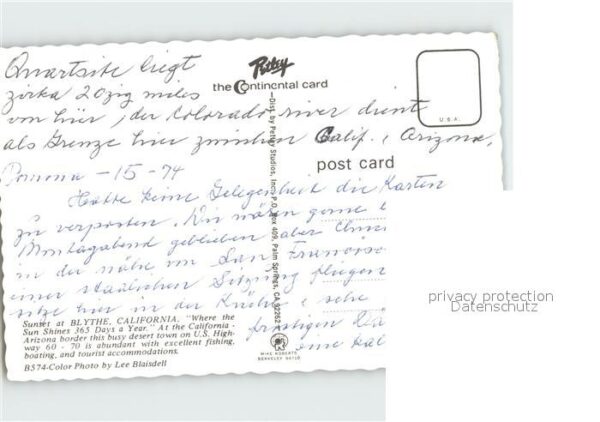 Quartsite liegt
zirka 20zig miles
von hier, der Colorado river dient
als Grenze hier zwischen Calif. & Arizona.
Petley
the Continental card
U.S.A.
post card
Dist. by Petley Studios, Inc., P.O. Box 409, Palm Springs, CA 92262
Pomona -15-74
Hatte keine Gelegenheit die Karten
zu verposten. Wir wären gerne
Montagabend geblieben aber
in der nähe von San Francisco
einer staatlichen Sitzung fliegen
sitze hier in der Küche & sehe
frostigen
eine
Sunset at BLYTHE, CALIFORNIA. "Where the
Sun Shines 365 Days a Year." At the California -
Arizona border this busy desert town on U.S. High-
way 60 - 70 is abundant with excellent fishing,
boating, and tourist accommodations.
B574-Color Photo by Lee Blaisdell
MIKE ROBERTS
BERKELEY 94710
privacy protection
Datenschutz